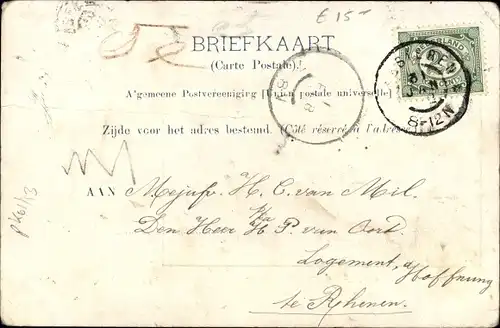 £ 15-
52
BRIEFKAART
(Carte Postale).
Algemeene Postvereeniging [Union postale universelle]
Zijde voor het adres bestemd. (Côté réservé à l'adresse)
AAN Mejufr. H. C. van Mil.
p/a
Den Heer H. P. van Oord.
Logement, a/ Hoffnung
te Rhenen.
NEDERLAND
8-12V